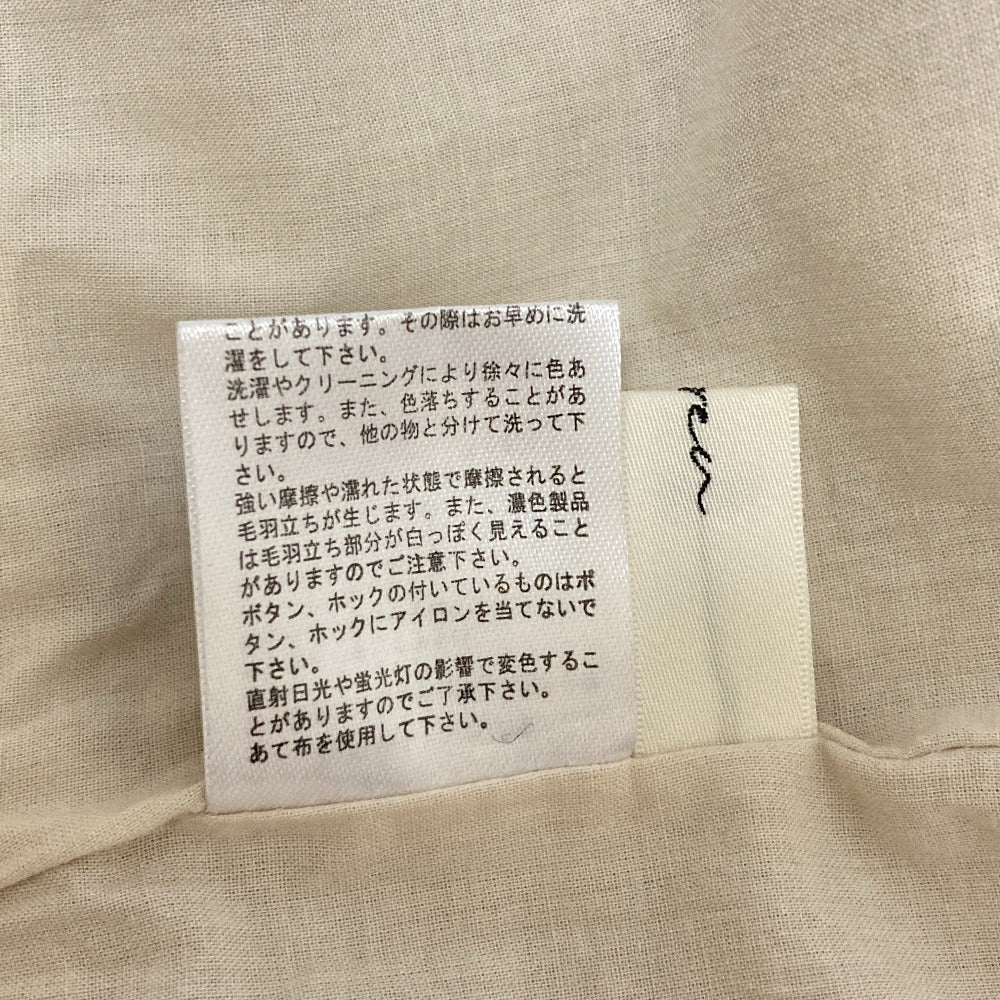 ことがあります。その際はお早めに洗
濯をして下さい。
洗濯やクリーニングにより徐々に色あ
せします。また、色落ちすることがあ
りますので、他の物と分けて洗って下
さい。
強い摩擦や濡れた状態で摩擦されると
毛羽立ちが生じます。また、濃色製品
は毛羽立ち部分が白っぽく見えること
がありますのでご注意下さい。
ボタン、ホックの付いているものはボ
タン、ホックにアイロンを当てないで
下さい。
直射日光や蛍光灯の影響で変色するこ
とがありますのでご了承下さい。
あて布を使用して下さい。